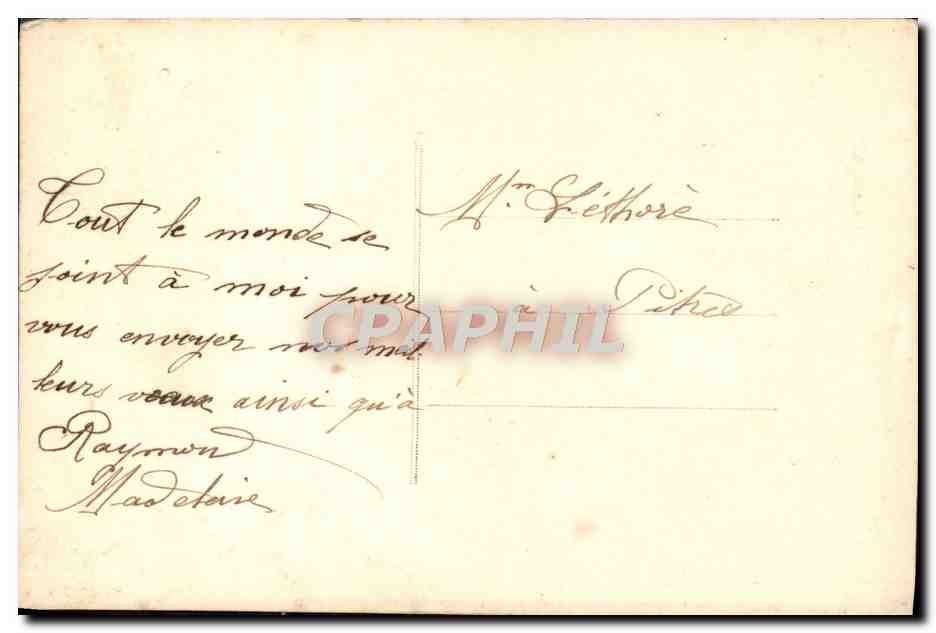 Tout le monde se
joint à moi pour
vous envoyer nos meil
leurs vœux ainsi qu'à
Raymond
Madeleine
Mm Léthoré
à Pitres
CPAPHIL